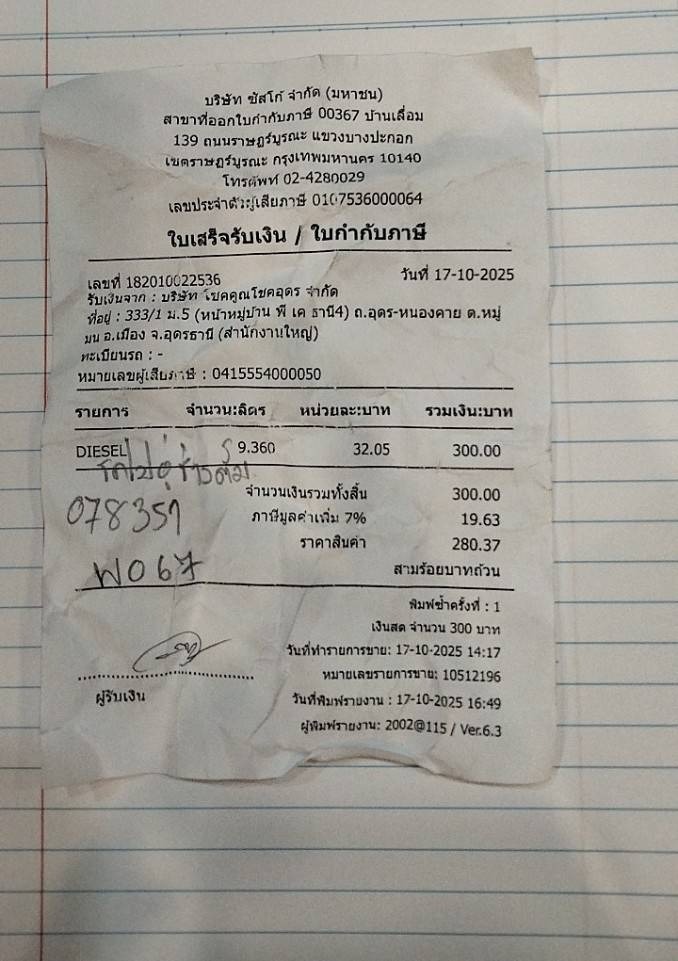 บริษัท ซัสโก้ จำกัด (มหาชน)
สาขาที่ออกใบกำกับภาษี 00367 บ้านเลื่อม
139 ถนนราษฎร์บูรณะ แขวงบางปะกอก
เขตราษฎร์บูรณะ กรุงเทพมหานคร 10140
โทรศัพท์ 02-4280029
เลขประจำตัวผู้เสียภาษี 0107536000064
ใบเสร็จรับเงิน / ใบกำกับภาษี
เลขที่ 182010022536 วันที่ 17-10-2025
รับเงินจาก : บริษัท โชคคูณโชคอุดร จำกัด
ที่อยู่ : 333/1 ม.5 (หน้าหมู่บ้าน พี เค ธานี4) ถ.อุดร-หนองคาย ต.หมู่
มน อ.เมือง จ.อุดรธานี (สำนักงานใหญ่)
ทะเบียนรถ : -
หมายเลขผู้เสียภาษี : 0415554000050
รายการ จำนวน:ลิตร หน่วยละ:บาท รวมเงิน:บาท
DIESEL 9.360 32.05 300.00
จำนวนเงินรวมทั้งสิ้น 300.00
078351
ภาษีมูลค่าเพิ่ม 7% 19.63
ราคาสินค้า 280.37
W067
สามร้อยบาทถ้วน
พิมพ์ซ้ำครั้งที่ : 1
เงินสด จำนวน 300 บาท
วันที่ทำรายการขาย: 17-10-2025 14:17
หมายเลขรายการขาย: 10512196
ผู้รับเงิน
วันที่พิมพ์รายงาน : 17-10-2025 16:49
ผู้พิมพ์รายงาน: 2002@115 / Ver.6.3